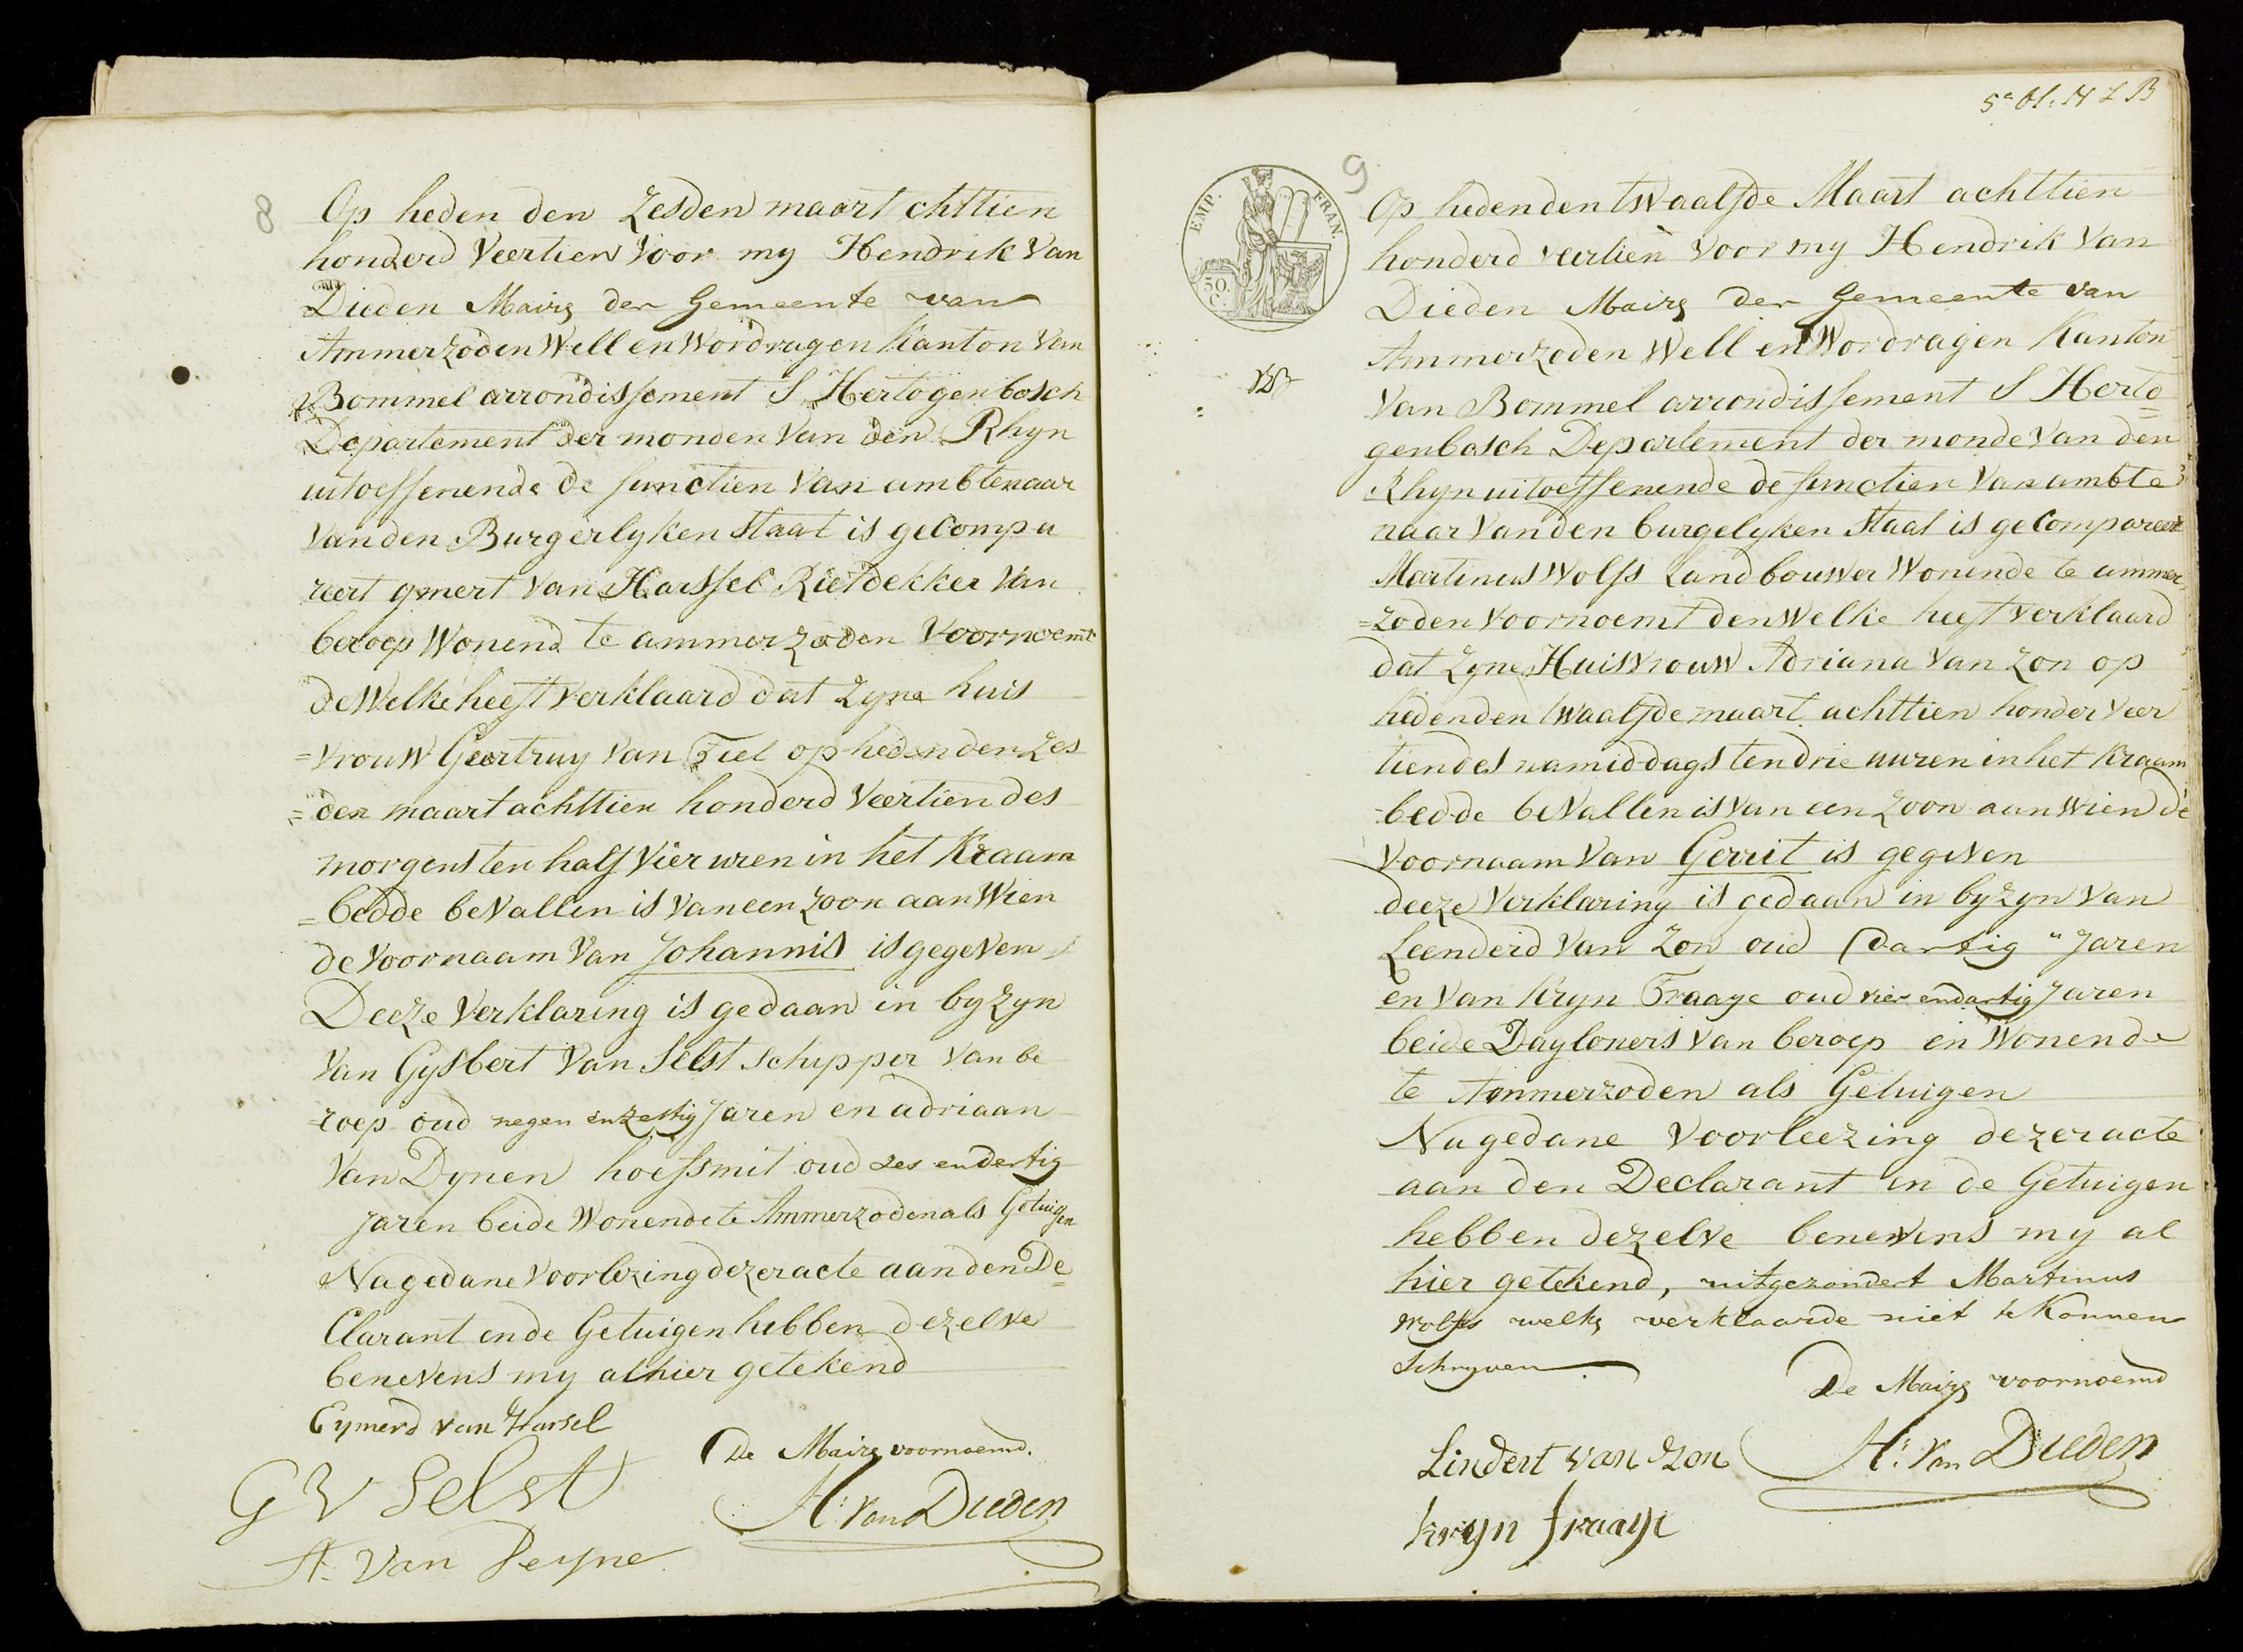 8
Op heden den Zesden maart chttien
honderd Veertien Voor my Hendrik Van
Dieden Maire der Gemeente van
Ammerzoden Well en Wordragen Kanton Van
Bommel arrondissement S Hertogenbosch
Departement der monden Van den Rhyn
uitoeffenende de functien Van ambtenaar
Van den Burgerlyken Staat is geCompa
reert ymert Van Harssel Rietdekker Van
beroep Wonend te ammerzoden Voornoemt
de Welke heeft Verklaard dat Zyne huis
=vrouw Geertruy Van Tiel op heden den Zes
=den maart achttien honderd Veertien des
morgens ten half Vier uren in het Kraam
=bedde beVallen is Van een Zoon aan Wien
de Voornaam Van Johannis is gegeVen
Deeze Verklaring is gedaan in byzyn
Van Gysbert Van Selst Schipper Van be
=roep oud negen en zestig Jaren en adriaan
Van Dynen hoefsmit oud zes en dertig
Jaren beide Wonende te Ammerzoden als Getuigen
Na gedane Voorlezing dezer acte aan den De=
Clarant en de Getuigen hebben dezelve
beneVens my alhier getekend
Eymerd van Harsel
De Maire voornoemd.
G V Selst
H: Van Dieden
A. Van Deyne
5e bl: N L B
9
EMP. FRAN.
50. C.
Op heden den tWaalfde Maart achttien
honderd veertien Voor my Hendrik Van
Dieden Maire der Gemeente van
Ammerzoden Well en Wordragen Kanton
Van Bommel arrondissement S Herto=
genbosch Departement der monde Van den
Rhyn uitoeffenende de functien Van ambte
naar Van den burgelyken Staat is geCompareert
Martinus Wolfs Landbouwer Wonende te ammer
=zoden Voornoemt den Welke heeft Verklaard
dat Zyne Huisvrouw Adriana Van Zon op
heden den tWaalfde maart achttien honder Veer
tien des namiddags ten drie uuren in het Kraam
=bedde beVallen is Van een Zoon aan Wien de
Voornaam Van Gerrit is gegeVen
deeze Verklaring is gedaan in byzyn Van
Leenderd Van Zon oud dartig " Jaren
en Van Kryn Fraaye oud vier en dartig Jaren
beide Dagloners Van beroep en Wonende
te Ammerzoden als Getuigen
Na gedane Voorleezing dezer acte
aan den Declarant en de Getuigen
hebben dezelve benevens my al
hier getekend, uitgezondert Martinus
Wolfs welke verklaarde niet te Konnen
Schryven.
De Maire voornoemd
Lindert van Zon
H: Van Dieden
kryn fraaye